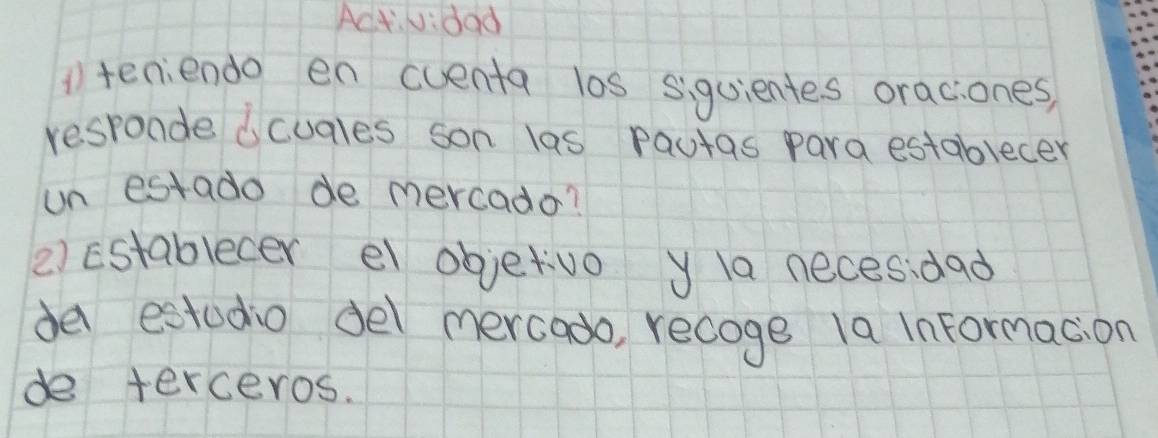 Actividad
1) teniendo en cuenta los siguientes oraciones,
responde ¿cuales son las pautas para establecer
un estado de mercado?
2) Establecer el objetivo y la necesidad
del estudio del mercado, recoge la informacion
de terceros.